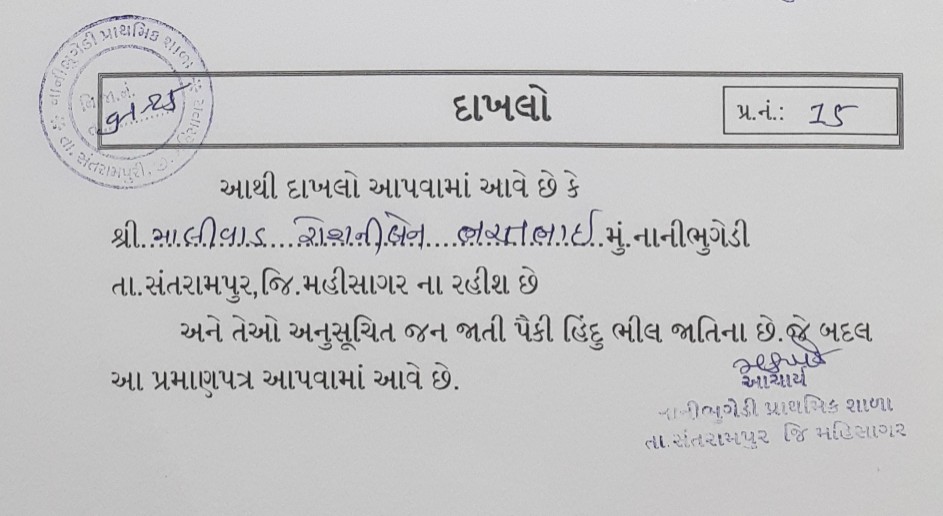 નાનીભુગેડી પ્રાથમિક શાળા
તા. સંતરામપુર
દાખલો
પ્ર.નં.: 15
આથી દાખલો આપવામાં આવે છે કે
શ્રી..માલીવાડ....રોશનીબેન....ભરતભાઈ..મું.નાનીભુગેડી
તા.સંતરામપુર,જિ.મહીસાગર ના રહીશ છે
અને તેઓ અનુસૂચિત જન જાતી પૈકી હિંદુ ભીલ જાતિના છે.જે બદલ
આ પ્રમાણપત્ર આપવામાં આવે છે.
આચાર્ય
નાનીભુગેડી પ્રાથમિક શાળા
તા.સંતરામપુર જિ મહિસાગર